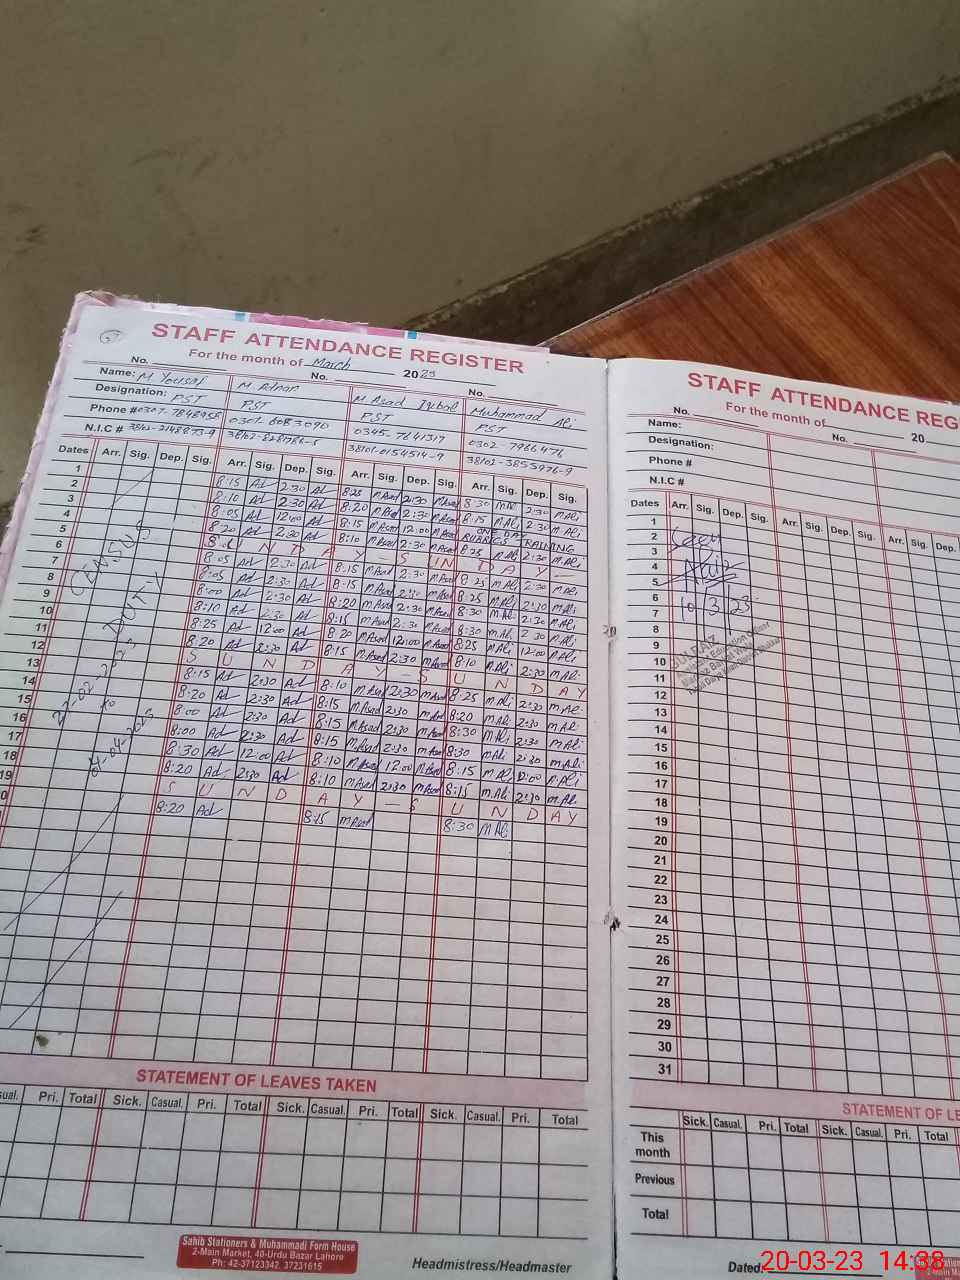 STAFF ATTENDANCE REGISTER
For the month of March 2023
No. No. No.
Name: M Yousaf M Adnan M Asad Iqbal Muhammad Ali
Designation: PST PST PST PST
Phone # 0307-7848958 0345-7641317 0302-7966476
N.I.C # 38102-2148873-9 38101-0154514-9 38102-3855976-9
Dates Arr. Sig. Dep. Sig. Arr. Sig. Dep. Sig. Arr. Sig. Dep. Sig. Arr. Sig. Dep. Sig.
1 8:15 Ad 2:30 Ad 8:25 M Asad 2:30 M Asad 8:30 M Ali 2:30 M Ali
2 8:10 Ad 2:30 Ad 8:20 M Asad 2:30 M Asad 8:15 M Ali 2:30 M Ali
3 8:05 Ad 12:00 Ad 8:15 M Asad 12:00 M Asad ONE DAY RUBRICS TRAINING
4 8:20 Ad 2:30 Ad 8:10 M Asad 2:30 M Asad 8:25 M Ali 2:30 M Ali
5 SUNDAY - SUNDAY -
6 8:05 Ad 2:30 Ad 8:15 M Asad 2:30 M Asad 8:25 M Ali 2:30 M Ali
7 8:05 Ad 2:30 Ad 8:15 M Asad 2:30 M Asad 8:25 M Ali 2:30 M Ali
8 8:00 Ad 2:30 Ad 8:20 M Asad 2:30 M Asad 8:30 M Ali 2:30 M Ali
9 8:10 Ad 2:30 Ad 8:15 M Asad 2:30 M Asad 8:30 M Ali 2:30 M Ali
10 8:25 Ad 12:00 Ad 8:20 M Asad 12:00 M Asad 8:25 M Ali 12:00 M Ali
11 8:20 Ad 2:30 Ad 8:15 M Asad 2:30 M Asad 8:10 M Ali 2:30 M Ali
12 SUNDAY - SUNDAY
13 8:15 Ad 2:30 Ad 8:10 M Asad 2:30 M Asad 8:25 M Ali 2:30 M Ali
14 8:20 Ad 2:30 Ad 8:15 M Asad 2:30 M Asad 8:20 M Ali 2:30 M Ali
15 8:00 Ad 2:30 Ad 8:15 M Asad 2:30 M Asad 8:30 M Ali 2:30 M Ali
16 8:00 Ad 2:30 Ad 8:15 M Asad 2:30 M Asad 8:30 M Ali 2:30 M Ali
17 8:30 Ad 12:00 Ad 8:10 M Asad 12:00 M Asad 8:15 M Ali 12:00 M Ali
18 8:20 Ad 2:30 Ad 8:10 M Asad 2:30 M Asad 8:15 M Ali 2:30 M Ali
19 SUNDAY - SUNDAY
8:20 Ad 8:15 M Asad 8:30 M Ali
CENSUS
DUTY
to
STATEMENT OF LEAVES TAKEN
Pri. Total Sick. Casual. Pri. Total Sick. Casual. Pri. Total Sick. Casual. Pri. Total
Sahib Stationers & Muhammadi Form House
2-Main Market, 40-Urdu Bazar Lahore
Ph: 42-37123342, 37231615
Headmistress/Headmaster
STAFF ATTENDANCE REG
For the month of 20
No. No.
Name:
Designation:
Phone #
N.I.C #
Dates Arr. Sig. Dep. Sig. Arr. Sig. Dep. Sig. Arr. Sig. Dep.
1
2
3
4
5
6
7
8
9
10
11
12
13
14
15
16
17
18
19
20
21
22
23
24
25
26
27
28
29
30
31
10 3 23
GULFRAZ
STATEMENT OF LE
Sick. Casual. Pri. Total Sick. Casual. Pri. Total
This month
Previous
Total
Dated:
20-03-23 14:38